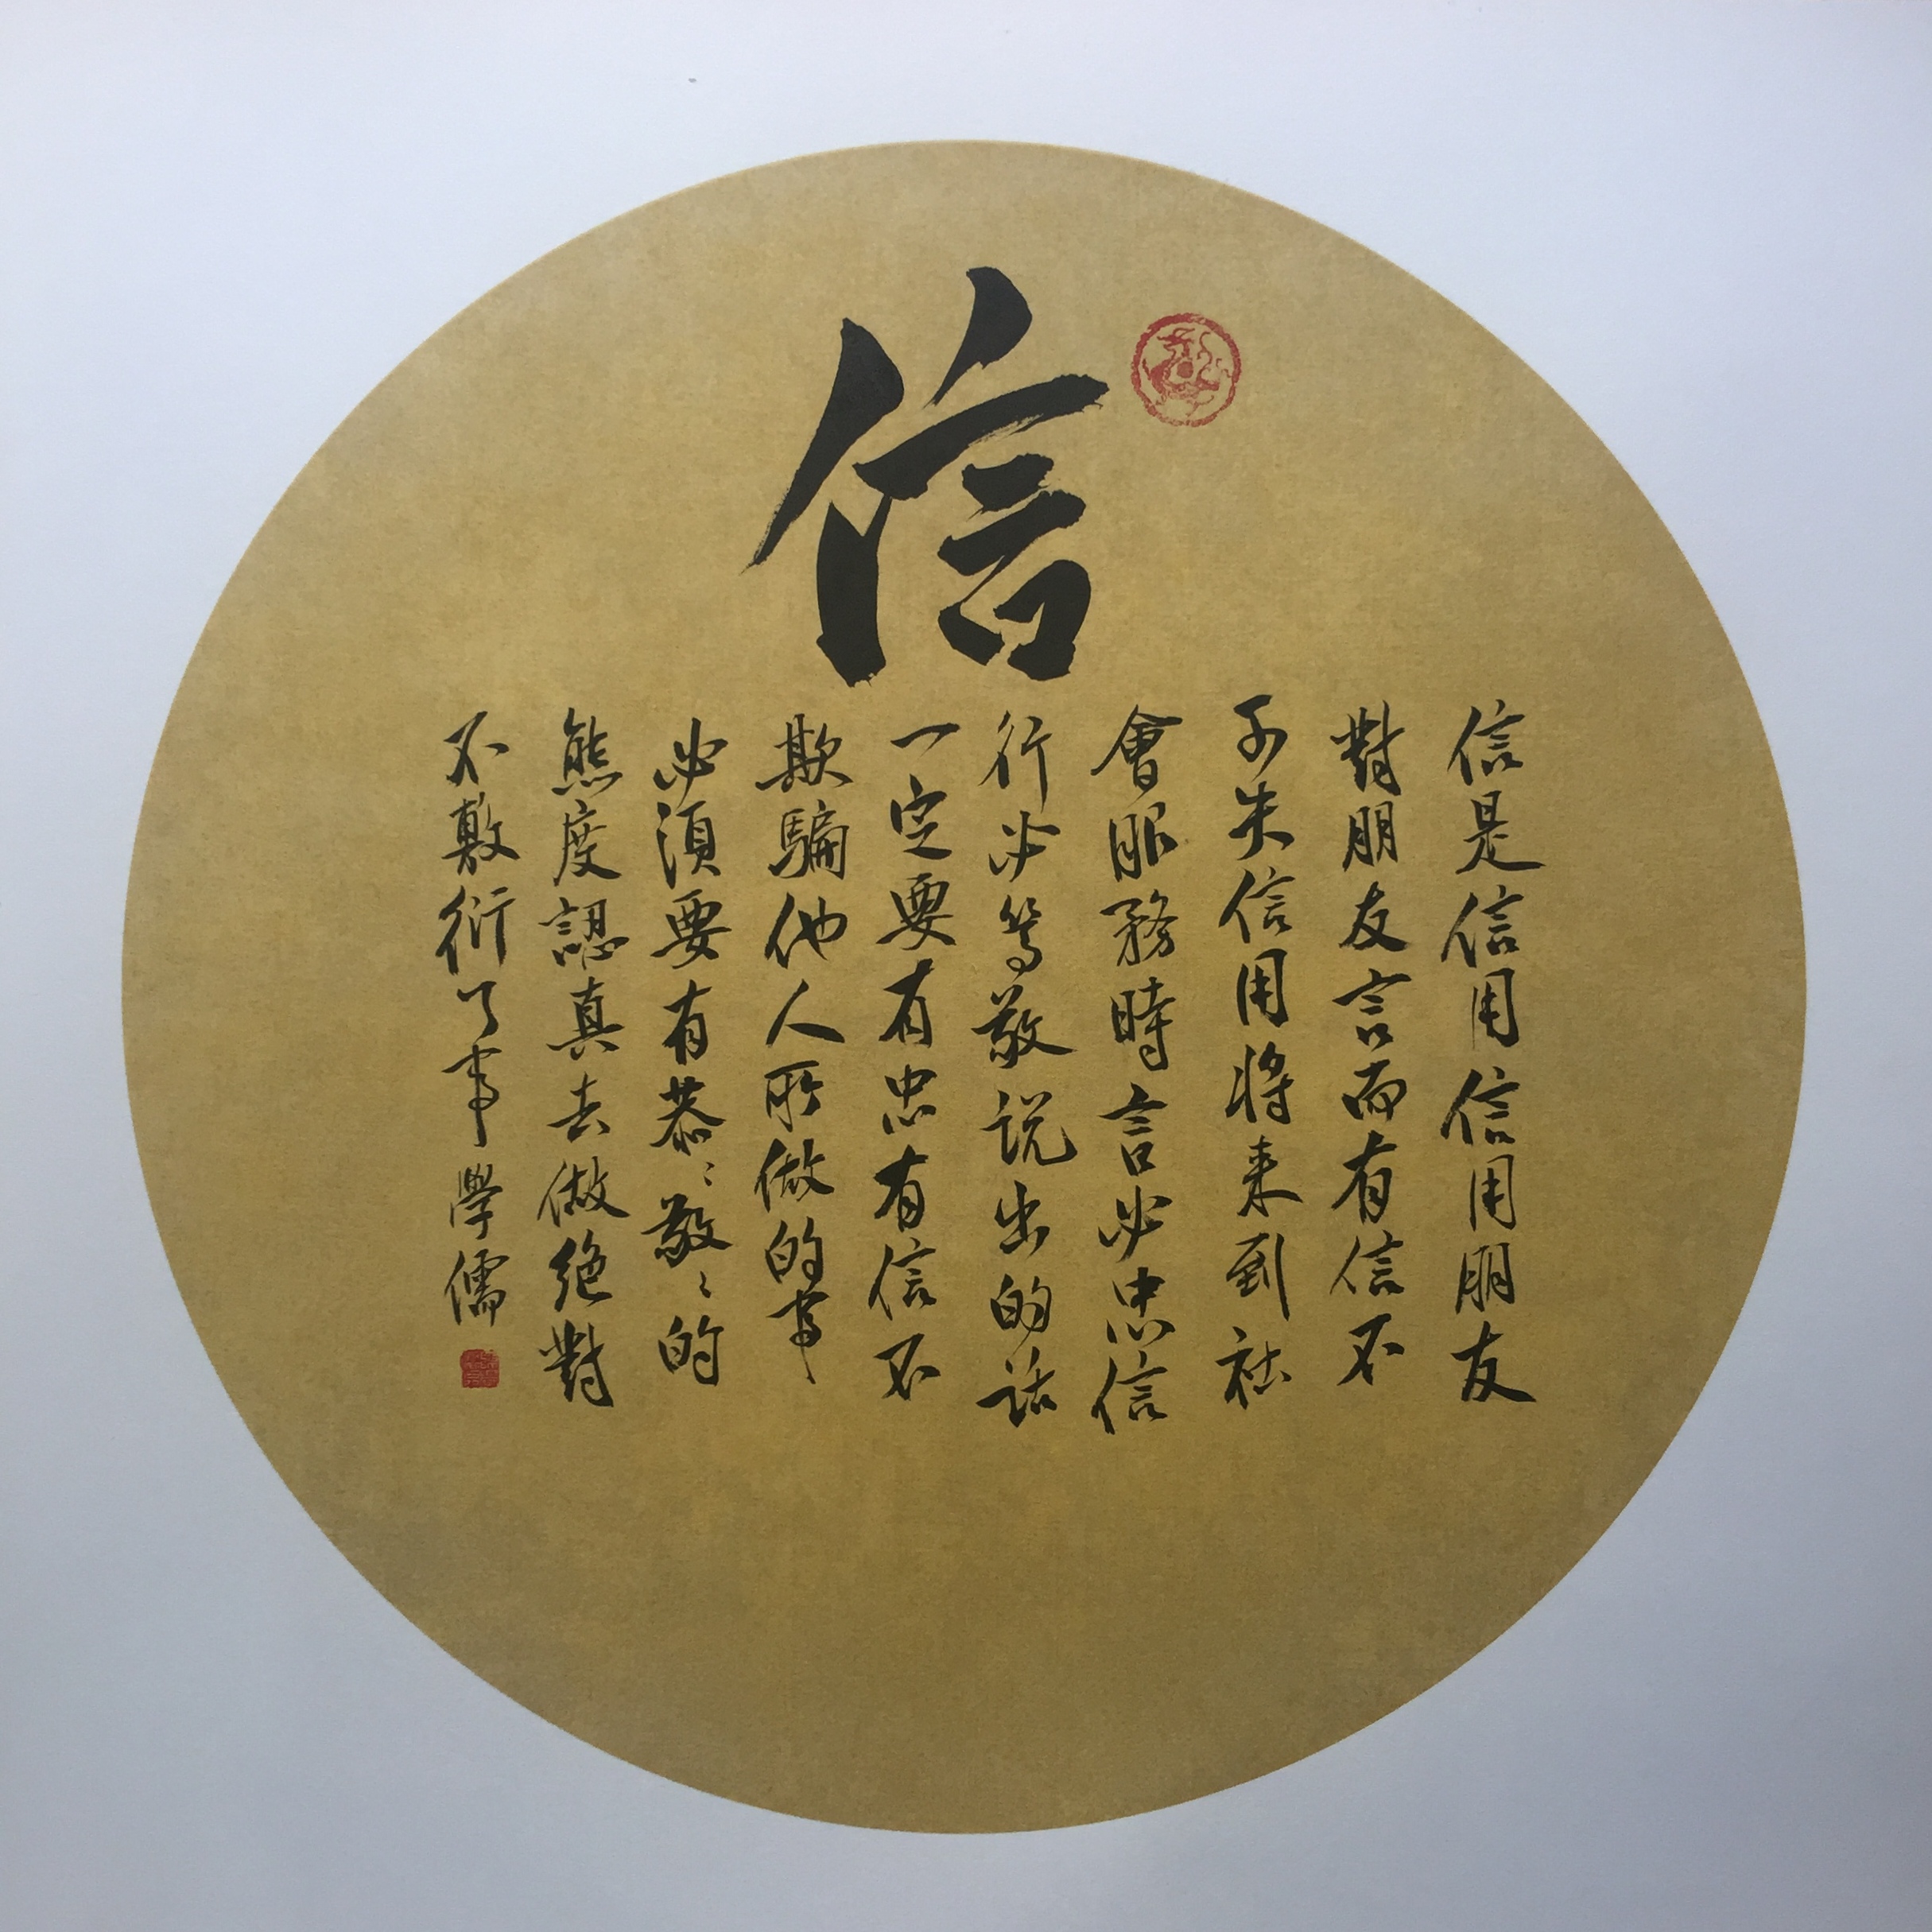 信
信是信用信用朋友
對朋友言而有信不
可失信用將来到社
會服務時言必忠信
行必篤敬說出的話
一定要有忠有信不
欺騙他人所做的事
必須要有恭〻敬〻的
態度認真去做絕對
不敷衍了事 學儒